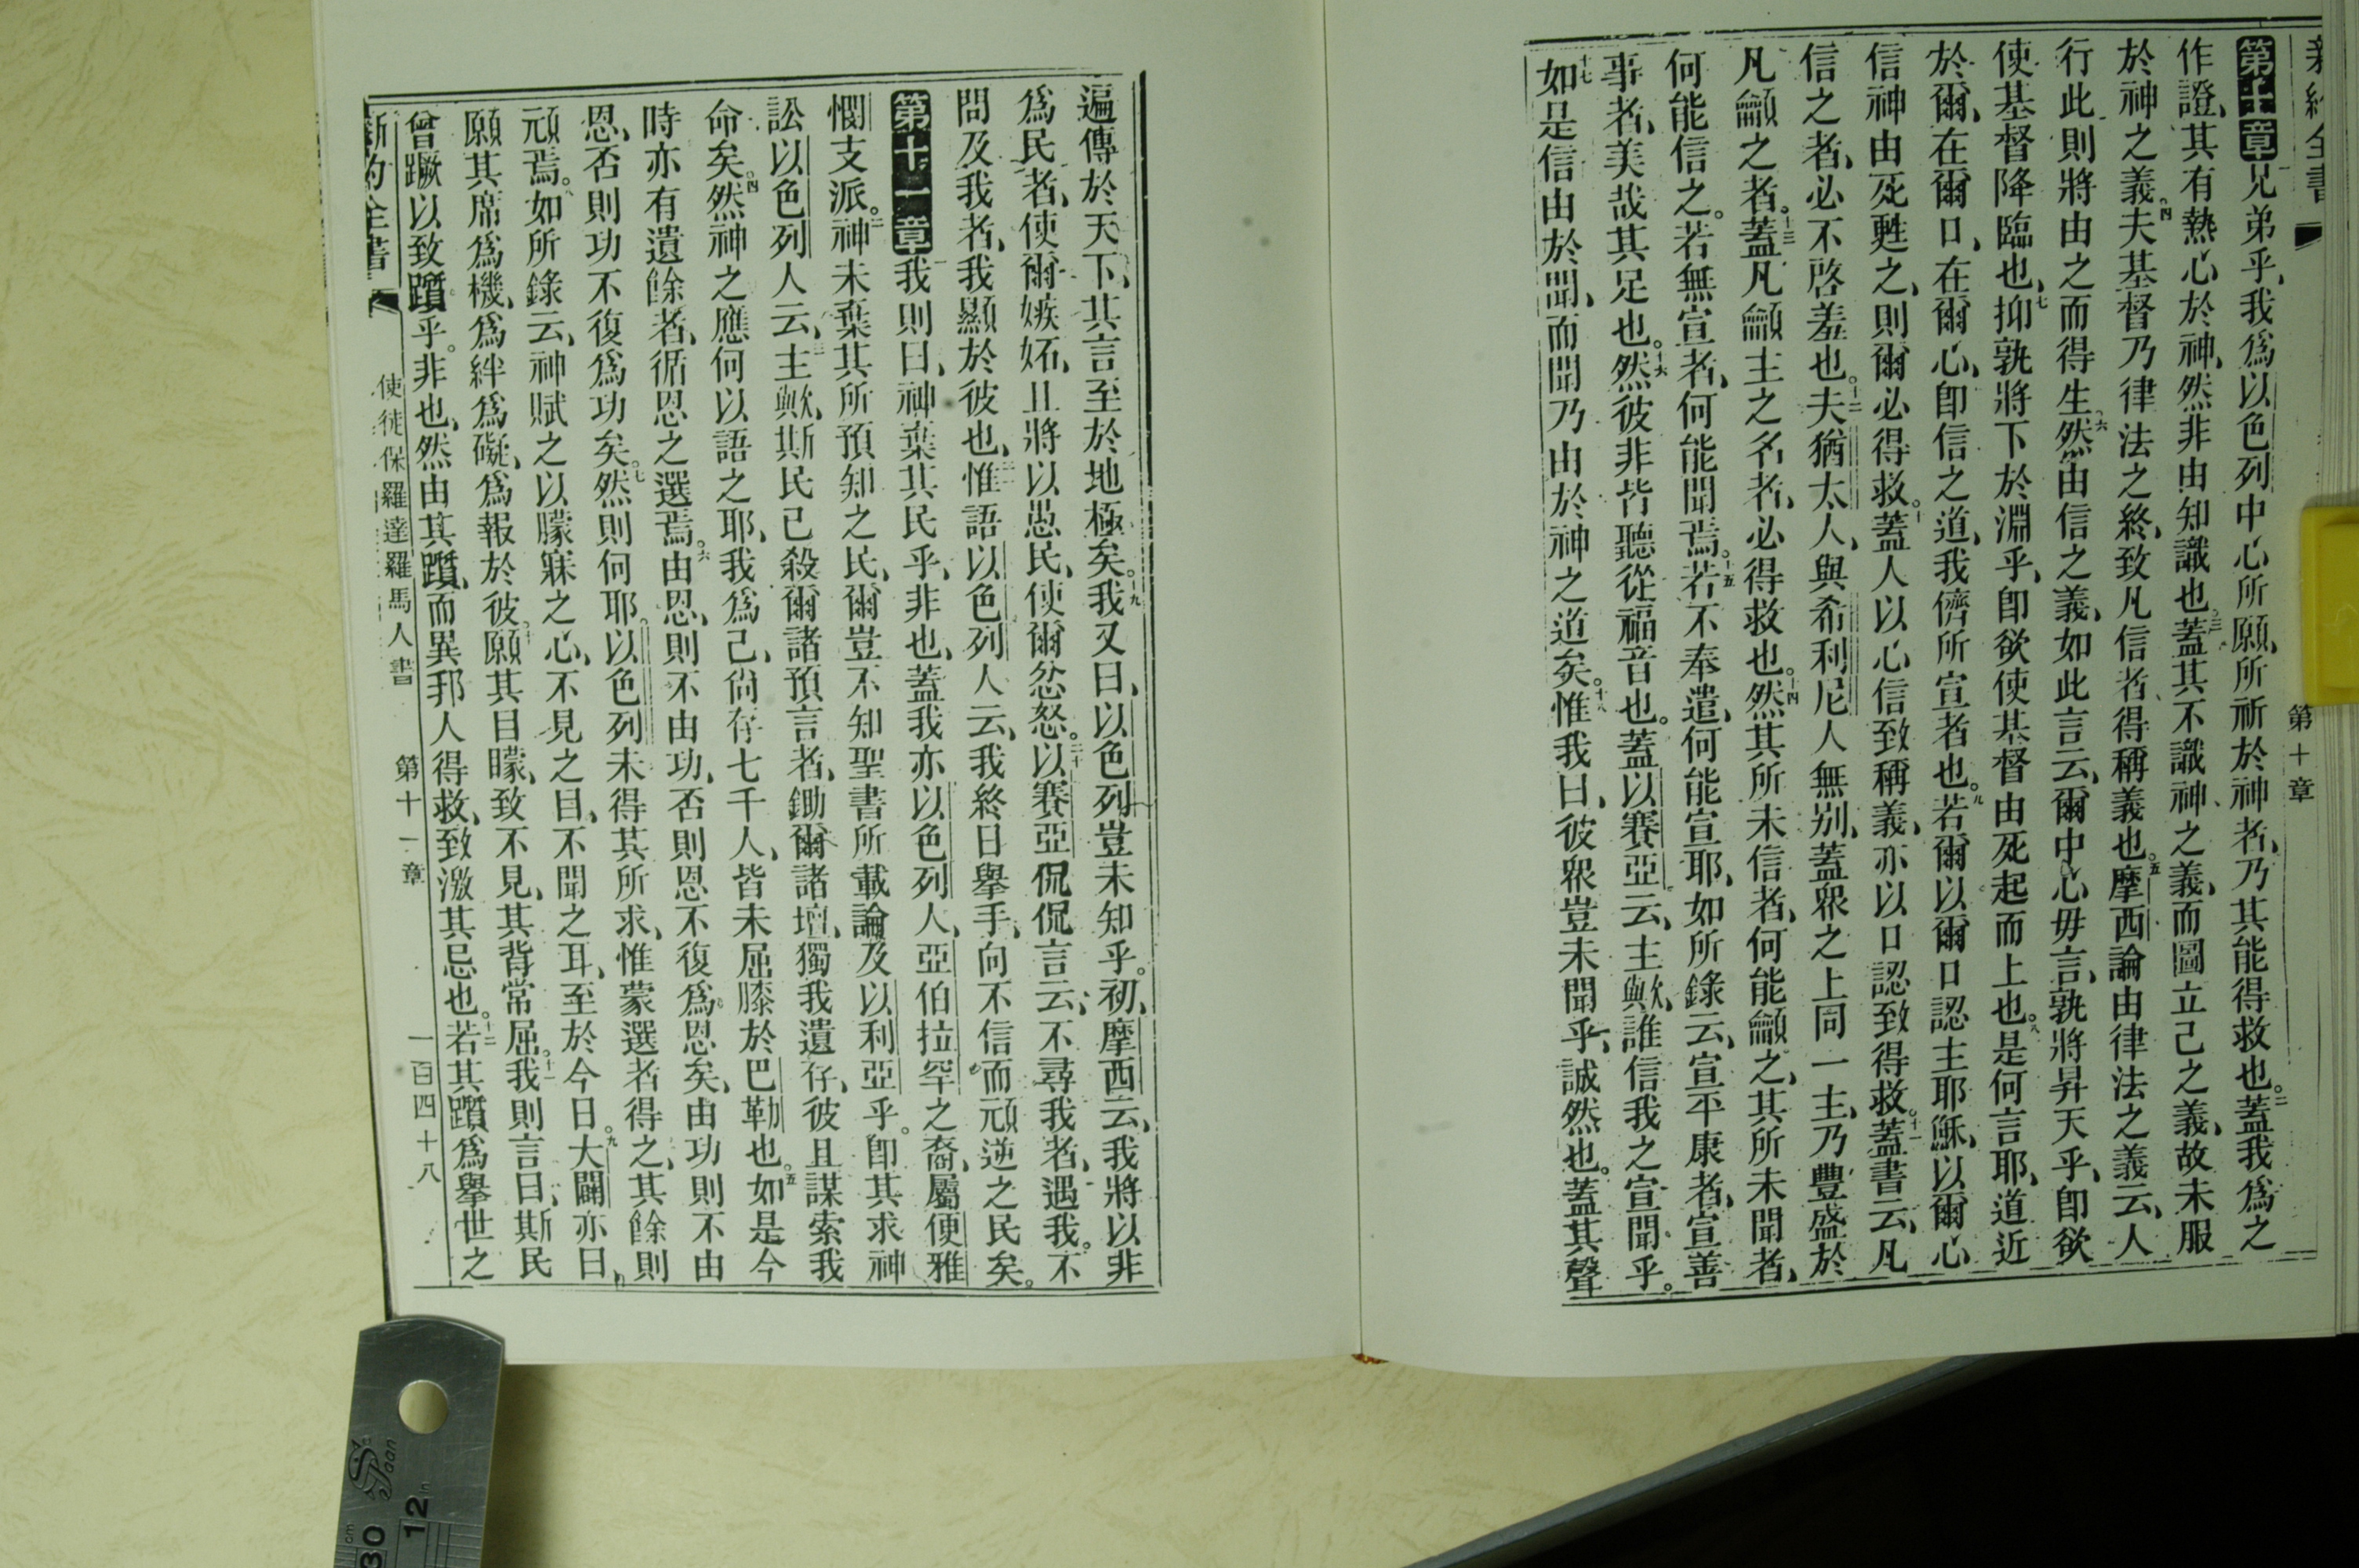 新約全書
第十章
第十章兄弟乎、我爲以色列中心所願、所祈於神者、乃其能得救也。二蓋我爲之
作證、其有熱心於神、然非由知識也。三蓋其不識神之義、而圖立己之義、故未服
於神之義。四夫基督乃律法之終、致凡信者、得稱義也。五摩西論由律法之義云、人
行此則將由之而得生。六然由信之義、如此言云、爾中心毋言、孰將昇天乎、卽欲
使基督降臨也、七抑孰將下於淵乎、卽欲使基督由死起而上也。八是何言耶、道近
於爾、在爾口、在爾心、卽信之道、我儕所宣者也。九若爾以爾口認主耶穌、以爾心
信神由死甦之、則爾必得救。十蓋人以心信致稱義、亦以口認致得救。十一蓋書云、凡
信之者、必不啓羞也。十二夫猶太人、與希利尼人無别、蓋衆之上同一主、乃豐盛於
凡籲之者。十三蓋凡籲主之名者、必得救也。十四然其所未信者、何能籲之、其所未聞者、
何能信之。若無宣者、何能聞焉。十五若不奉遣、何能宣耶、如所錄云、宣平康者、宣善
事者、美哉其足也。十六然彼非皆聽從福音也。蓋以賽亞云、主歟、誰信我之宣聞乎。
十七如是信由於聞、而聞乃由於神之道矣。十八惟我曰、彼衆豈未聞乎、誠然也。蓋其聲
遍傳於天下、其言至於地極矣。十九我又曰、以色列豈未知乎。初、摩西云、我將以非
爲民者、使爾嫉妬、且將以愚民、使爾忿怒。二十以賽亞侃侃言云、不尋我者、遇我。不
問及我者、我顯於彼也、二一惟語以色列人云、我終日舉手、向不信而頑逆之民矣。
第十一章我則曰、神棄其民乎、非也、蓋我亦以色列人、亞伯拉罕之裔、屬便雅
憫支派。二神未棄其所預知之民、爾豈不知聖書所載論及以利亞乎。卽其求神
訟以色列人云、三主歟、斯民已殺爾諸預言者、鋤爾諸壇、獨我遺存、彼且謀索我
命矣。四然神之應何以語之耶、我爲己、尙存七千人、皆未屈膝於巴勒也。五如是今
時亦有遺餘者、循恩之選焉。六由恩、則不由功、否則恩不復爲恩矣、由功則不由
恩、否則功不復爲功矣。七然則何耶。以色列未得其所求、惟蒙選者得之、其餘則
頑焉。八如所錄云、神賦之以朦寐之心、不見之目、不聞之耳、至於今日。九大闢亦曰、
願其席爲機、爲絆、爲礙、爲報於彼。十願其目矇、致不見、其背常屈。十一我則言曰、斯民
曾蹶以致躓乎。非也、然由其躓、而異邦人得救、致激其忌也。十二若其躓爲舉世之
新約全書
使徒保羅達羅馬人書
第十一章
一百四十八
Spaan
cm
30
in
12